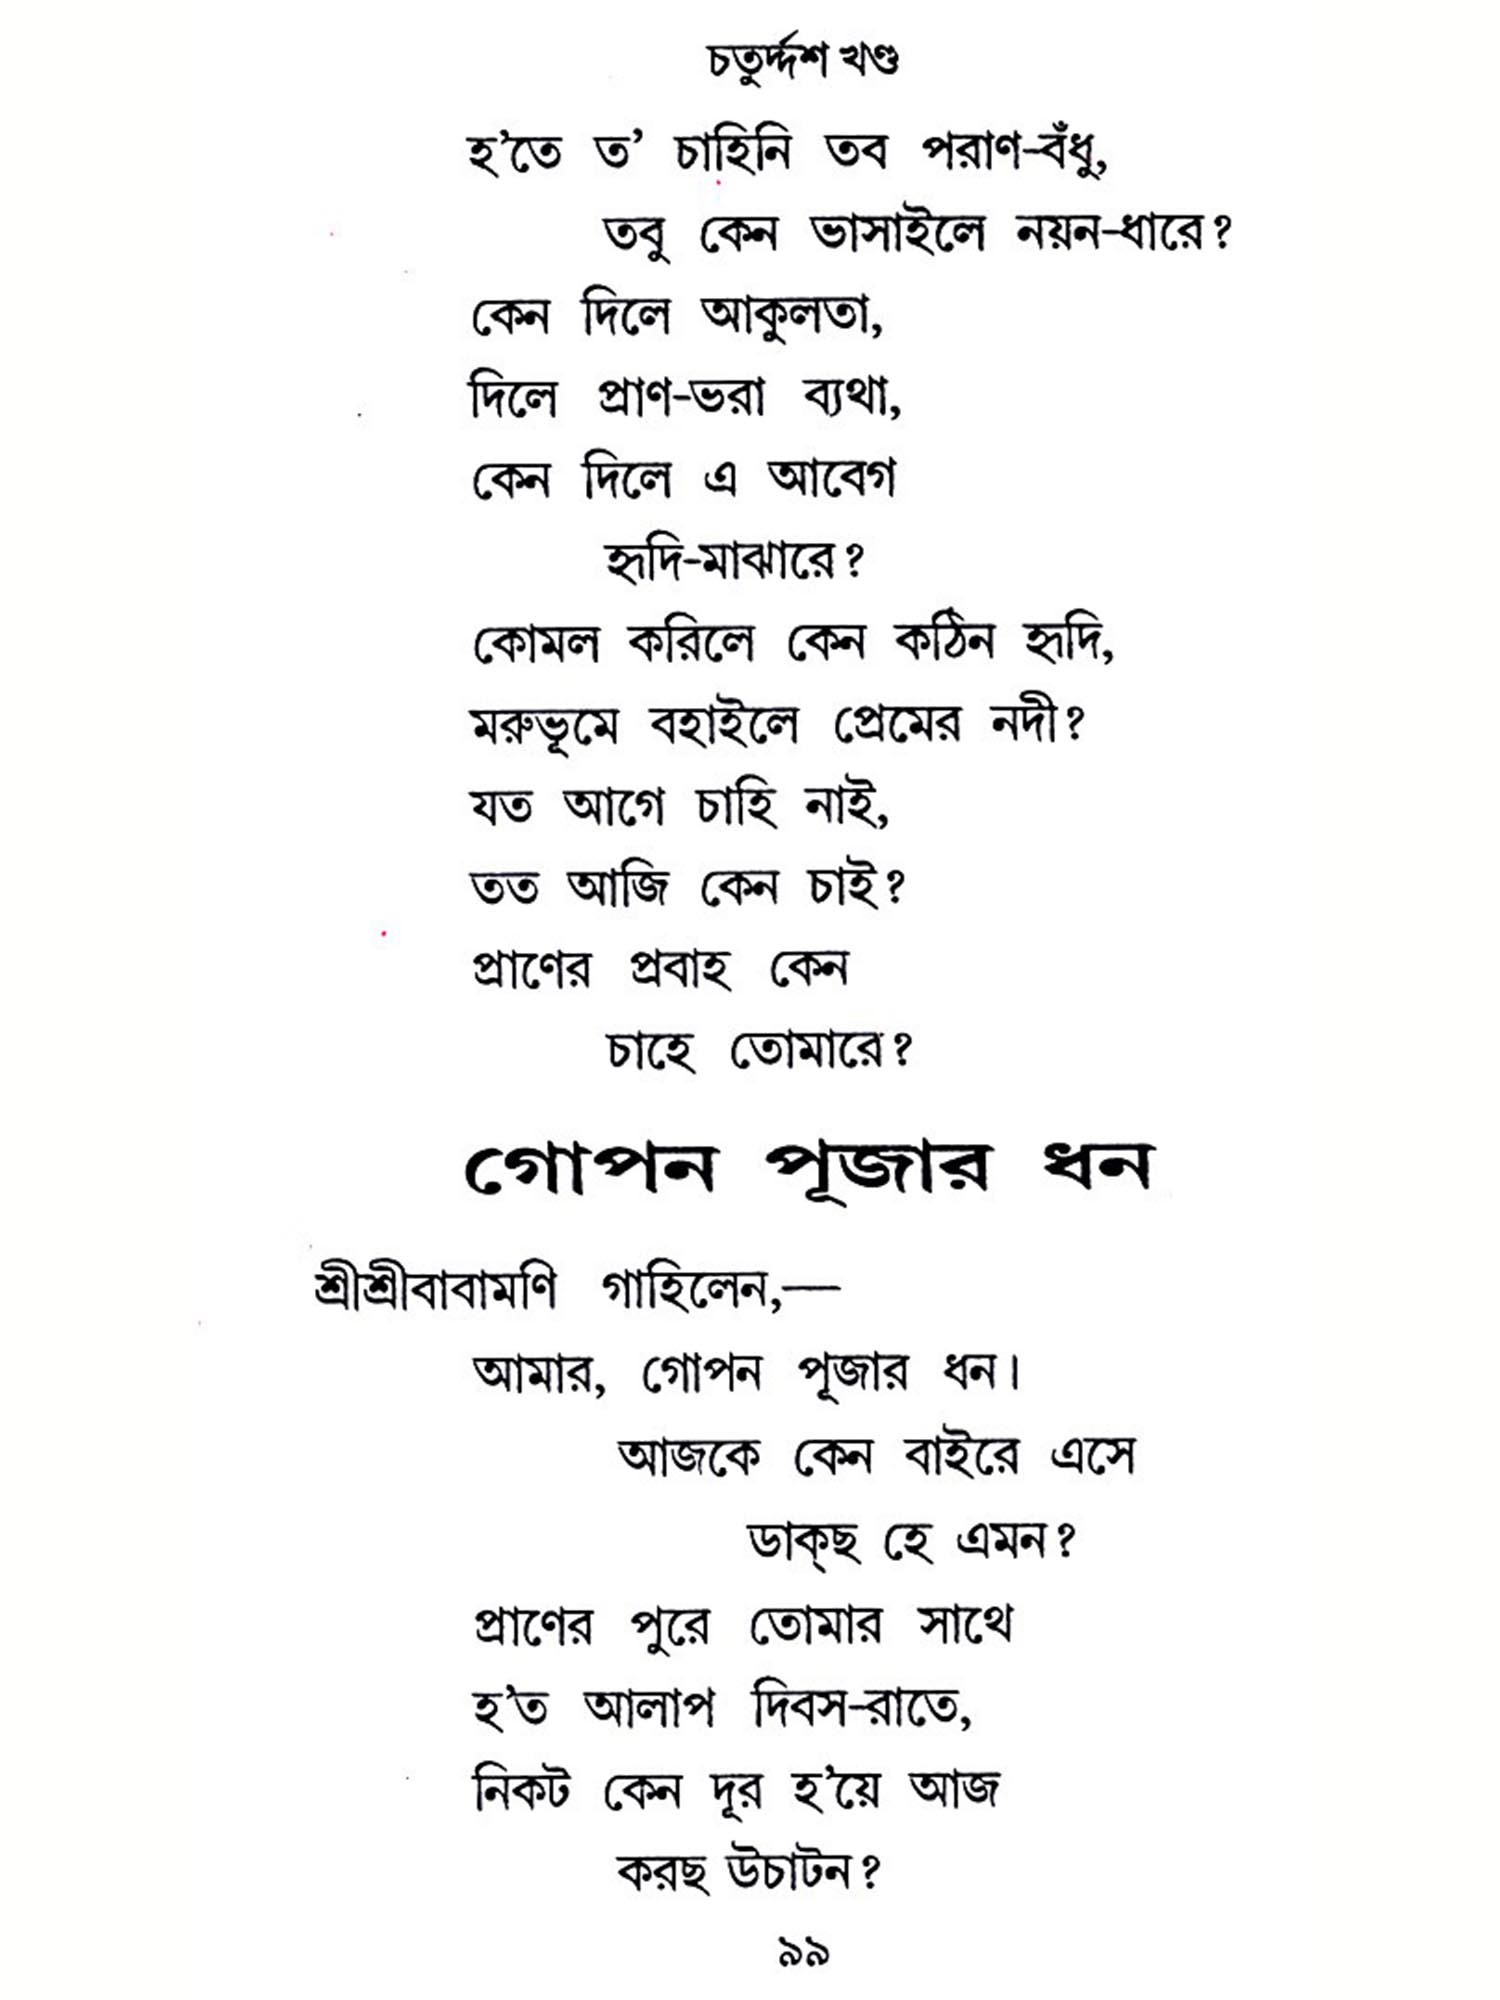 চতুর্দ্দশ খণ্ড
হ'তে ত' চাহিনি তব পরাণ-বঁধু,
তবু কেন ভাসাইলে নয়ন-ধারে?
কেন দিলে আকুলতা,
দিলে প্রাণ-ভরা ব্যথা,
কেন দিলে এ আবেগ
হৃদি-মাঝারে?
কোমল করিলে কেন কঠিন হৃদি,
মরুভূমে বহাইলে প্রেমের নদী?
যত আগে চাহি নাই,
তত আজি কেন চাই?
প্রাণের প্রবাহ কেন
চাহে তোমারে?
গোপন পূজার ধন
শ্রীশ্রীবাবামণি গাহিলেন,—
আমার, গোপন পূজার ধন।
আজকে কেন বাইরে এসে
ডাক্‌ছ হে এমন?
প্রাণের পুরে তোমার সাথে
হ'ত আলাপ দিবস-রাতে,
নিকট কেন দূর হ'য়ে আজ
করছ উচাটন?
৯৯